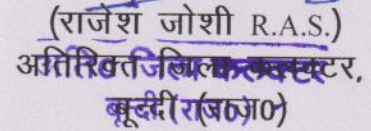 (राजेश जोशी R.A.S.)
अतिरिक्त जिला कलक्टर,
बून्दी (राज0)